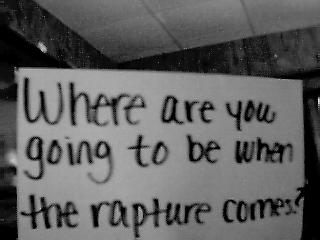 Where are you
going to be when
the rapture comes?